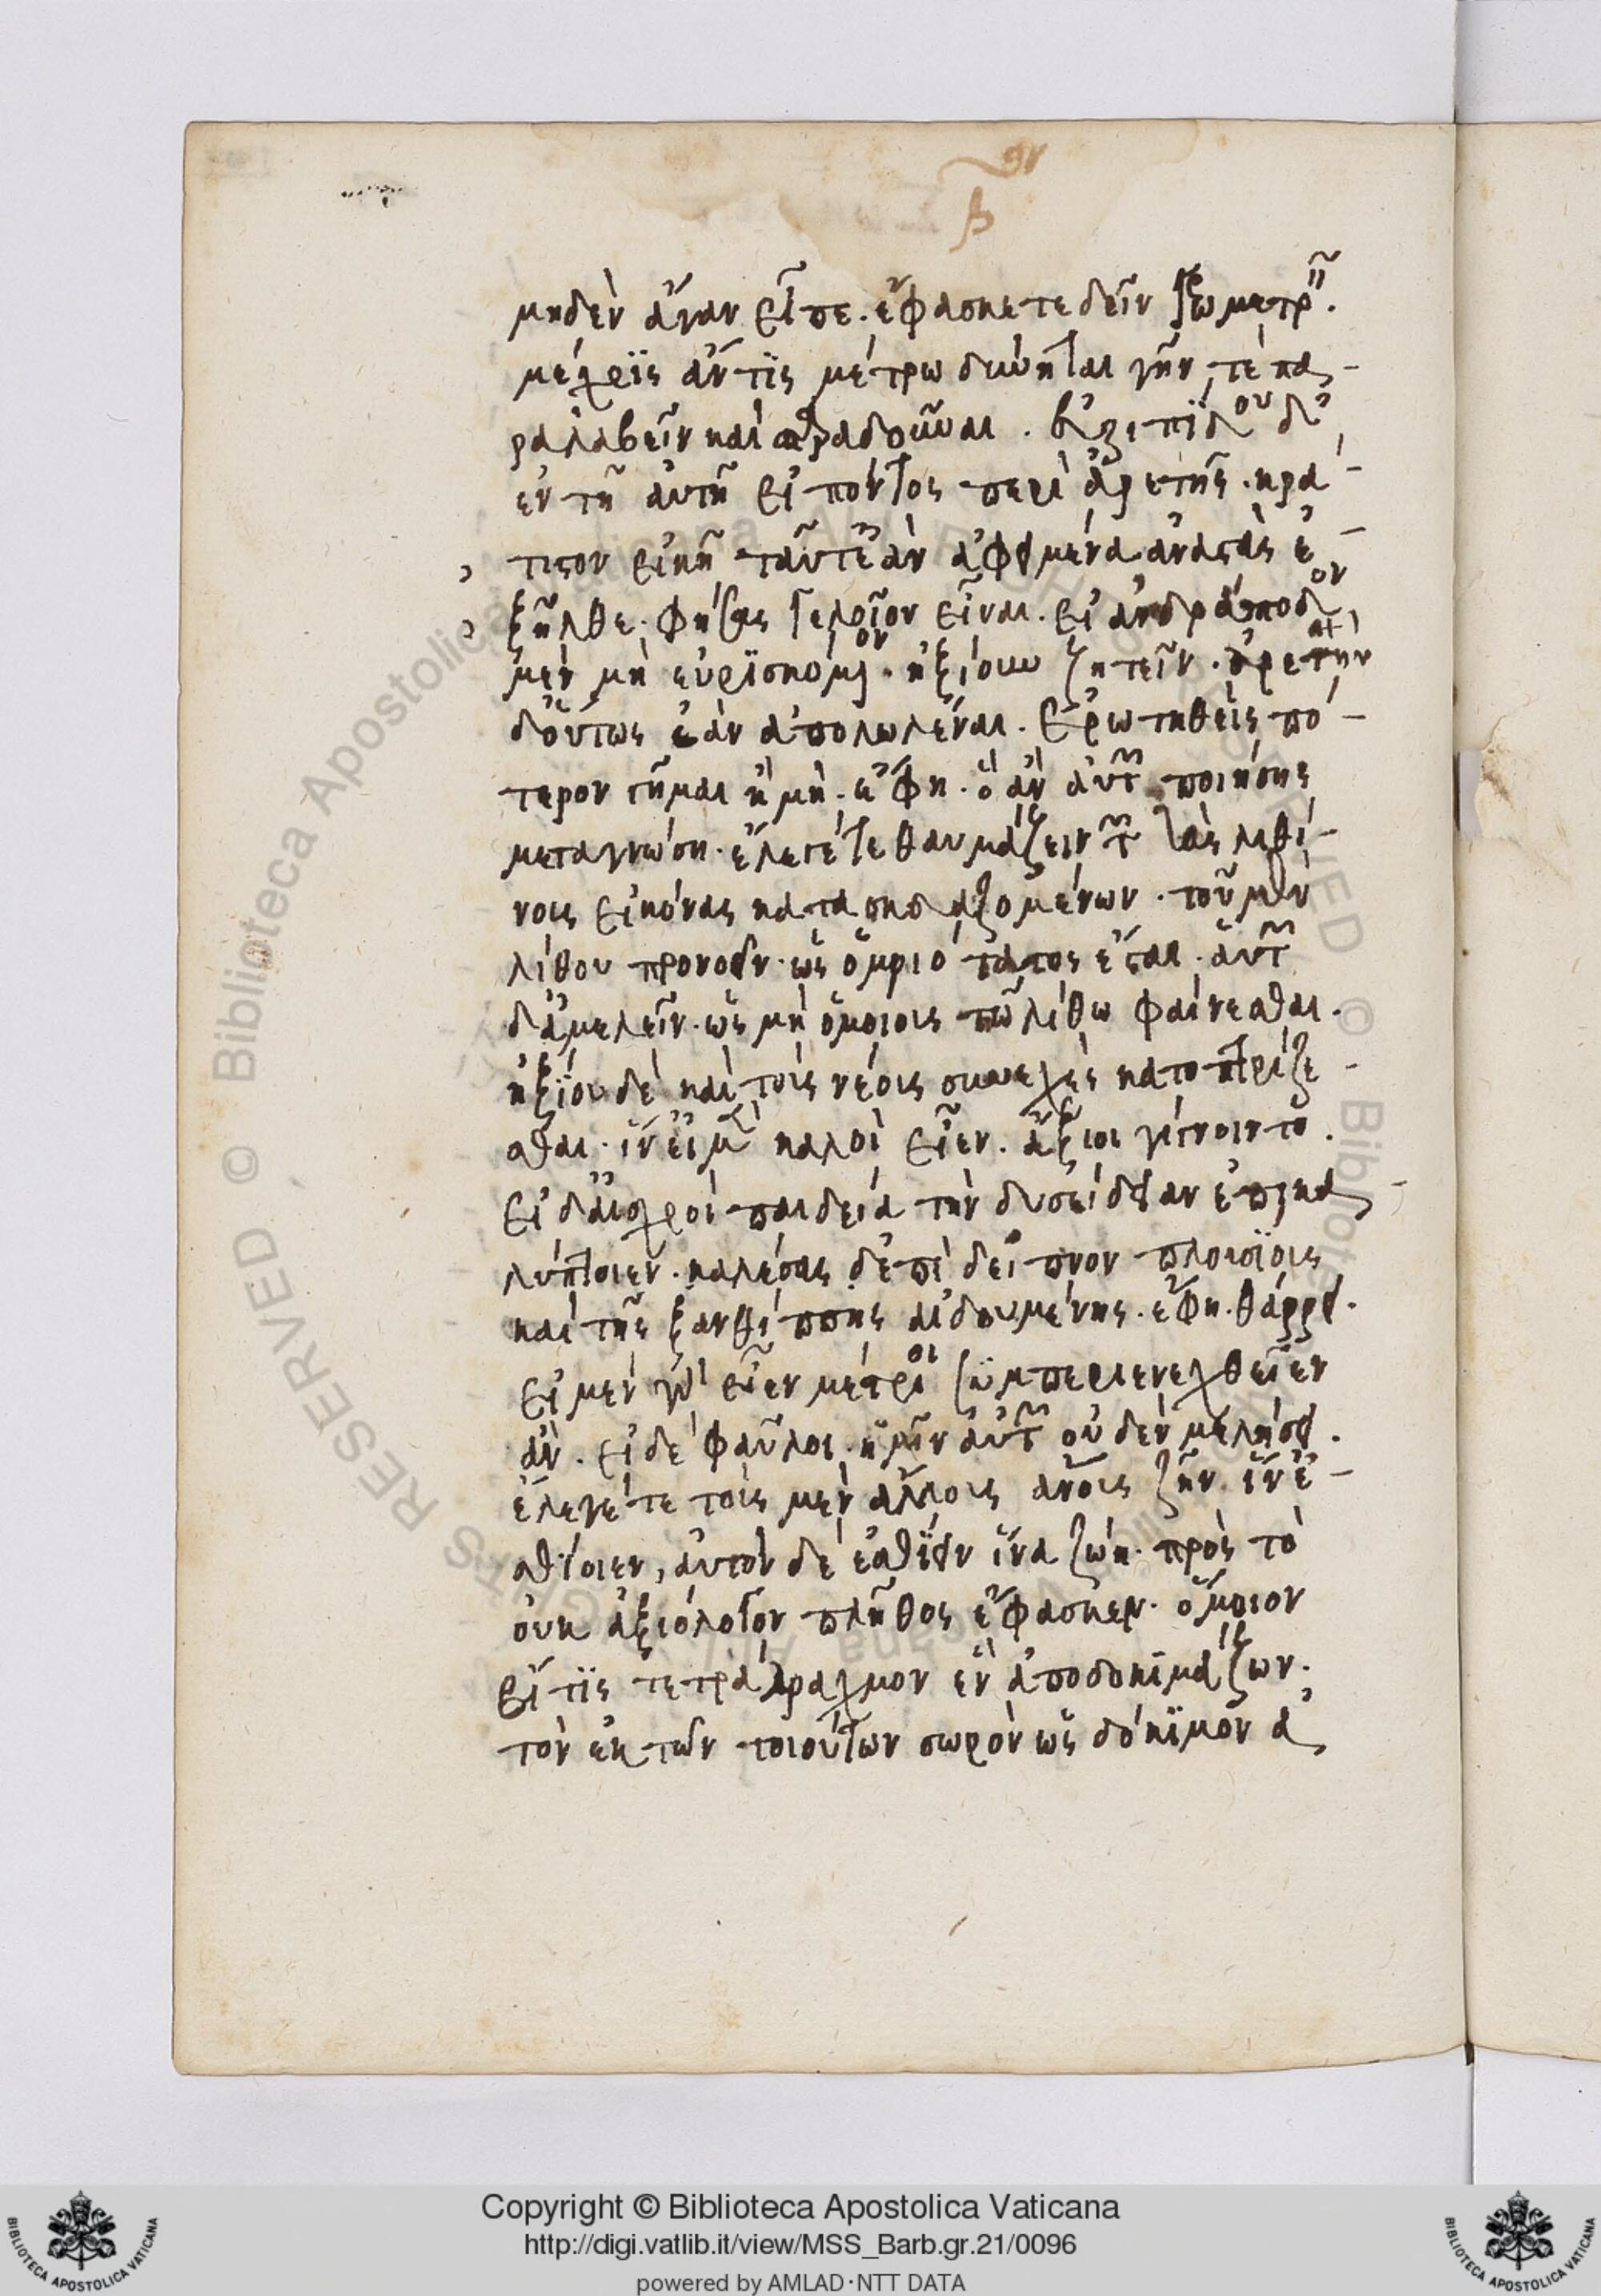 β
μηδὲν ἄγαν εἶπε. ἔφασκε τε δεῖν γεωμετρεῖν.
μέχρϊς ἄν τϊς μέτρω δύνηται γῆν, τὲ πα-
ραλαβεῖν καὶ παραδοῦναι. Εὐριπϊδου δ'
ἐν τῆ αὐτῆ εἰπόντος περὶ ἀρετῆς. κρά-
τιστον εἰκῆ ταῦτ' ἐᾶν ἀφειμένα ἀναστὰς ἐ-
ξῆλθε. φήσας γελοῖον εἶναι. εἰ ἀνδράποδον
μὲν μὴ εὑρϊσκόμενον. ἠξίουν ζητεῖν. ἀρετὴν
δ' οὕτως ἐᾶν ἀπολωλέναι. Ἐρωτηθεὶς πό-
τερον γῆμαι ἢ μὴ. ἔφη. ὃ ἂν αὐτῶν ποιήσης
μεταγνώση. ἔλεγέ τε θαυμάζειν τῶν τὰς λιθί-
νοις εἰκόνας κατασκευαζομένων. τοῦ μὲν
λίθου προνοεῖν. ὡς ὁμοιότατος ἔσται. αὑτῶν
δ' ἀμελεῖν. ὡς μὴ ὅμοιοις τῶ λίθω φαίνεσθαι.
ἠξϊου δὲ καὶ τοὺς νέοις συνεχὲς κατοπτρίζε-
σθαι. ἵν' εἰ μὲν καλοὶ εἶεν. ἄξιοι γίγνοιντο.
εἰ δ' αἰσχροὶ παιδεία τὴν δυσείδειαν ἐπικα-
λύπτοιεν. καλέσας δ' ἐπὶ δεῖπνον πλουσϊοις
καὶ τῆς ξανθίππης αἰδουμένης. ἔφη. θάρρει.
εἰ μὲν γὰρ εἶεν μέτριοι συμπεριενεχθεῖεν
ἄν. εἰ δὲ φαῦλοι. ἡμῖν αὐτῶν οὐδὲν μελήσει.
ἔλεγέ τε τοὺς μὲν ἄλλοις ἀνοις ζῆν. ἵν' ἐ-
σθίοιεν, αὐτὸν δὲ ἐσθϊειν ἵνα ζώη. πρὸς τὸ
οὐκ ἀξιόλογον πλῆθος ἔφασκεν. ὅμοιον
εἴ τϊς τετράδραχμον ἓν ἀποδοκϊμάζων.
τὸν ἐκ τῶν τοιούτων σωρὸν ὡς δόκϊμον ἀ-
Copyright © Biblioteca Apostolica Vaticana
http://digi.vatlib.it/view/MSS_Barb.gr.21/0096
powered by AMLAD·NTT DATA